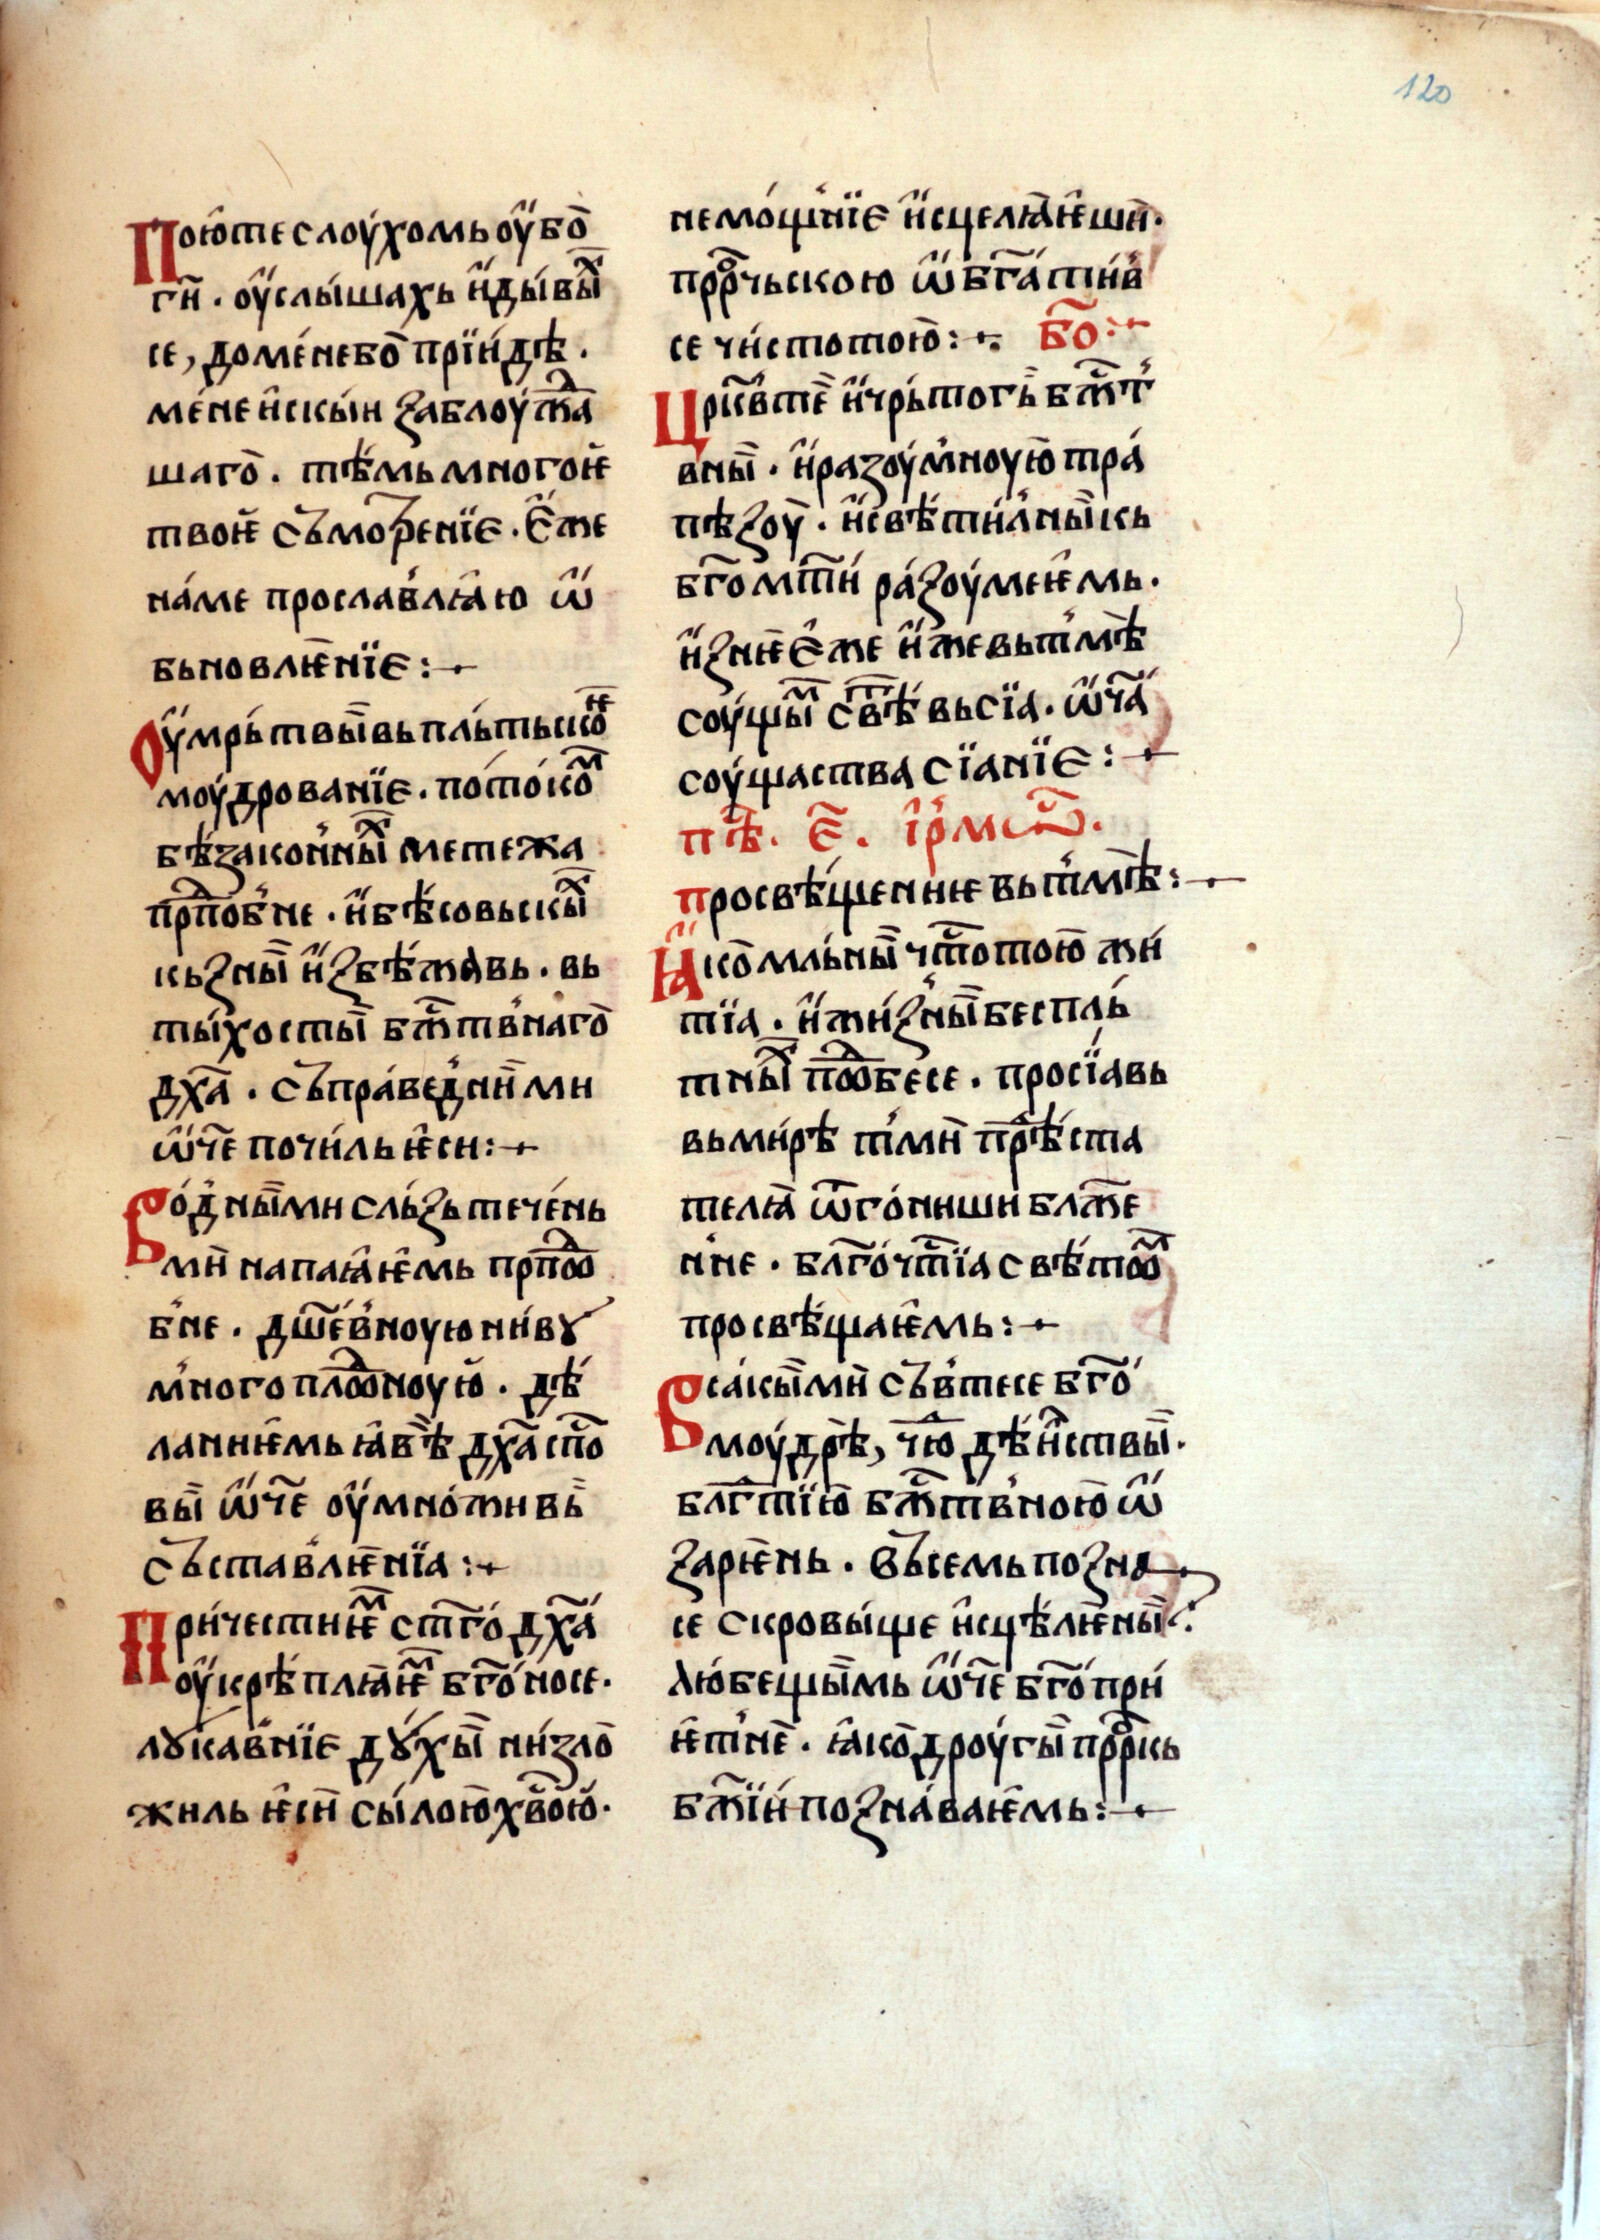 120
Пою́те слоу́хомь оу҆бѡ̀
гн҃. оу҆слы́шахь и҆ ди́вы́хⷯ
се, до ме́не бо̀ прїи́дѣ.
ме́не и҆скы́и заблоу́ждⷣа
шаго̀. тѣ́мь многоѥ
твоѥ съмо́ренїе. є҆же
на́ме прославлꙗ́ю ѡ҆
бьновлѥ́нїе :
Оу҆мрь́твы̀ вь пль́тьскоⷩ҇ѥ
моу́дрованїе. пото́комⷨ
бѣ́законны́хⷯ метежа
прⷣпобне. и҆ бѣ́совьскы́хⷯ
кьзны̀ и҆збѣ́жавь. вь
ты́хосты̀ бжⷭ҇твнаго̀
дх҃а. съ пра́ведны̀ми
ѡ҆ч҃е почи́ль ѥ҆си :
Во́дны̀ми сль́зь тече́нь
мѝ напаꙗ҆ѥмь прⷣпоо
бне. дш҃е́вноую ни́вꙋ
многоплоⷣноую. дѣ́
ланиѥмь ꙗ҆вѣ̀ дх҃а спⷭ҇о
вы̀ ѡ҆ч҃е оу҆мно́живь̀
съставлѥ́нїа :
При́честниѥмⷨ ст҃го́ дх҃а́
оу҆крѣплꙗѥмⷨ бг҃о́носе.
лꙋка́внїе дꙋ́хы̀ ни́зло̀
жиль ѥ҆сѝ сы́лою̀ хв҃ою̀.
немо́щнїе и҆сцелꙗ́ѥшѝ.
прⷪ҇рчьскою ѡ҆бг҃ати́в
се чи́стотою̀ : бо҃ :
Цр҃квтѐ и҆ чрь́тогь̀ бжⷭ҇т
вны̀. и҆ разоу́мноую̀ тра́
пѣзоу̀. и҆ свѣти́лны̀кь
бг҃омт҃и ра́зоу́меѥ҆мь.
и҆з нѥѐ є҆же и҆же вь тмѣ̀
соу́щы́мⷨ свѣⷮ вьсїа. ѡ҆ч҃а́
соу́щаства сїанїе :
пѣⷭ҇. є҃. і҆рмѡⷭ҇.
просвѣ́щениѥ вь тмѣ̀ :
Ꙗ҆ко̀ мль́ны̀ чтⷭ҇отою̀ жи
тїа. и҆ жи́зны̀ бесплъ́
тны́хⷯ поⷣобесе. просїа́вь
вь ми́рѣ тмѝ прⷣѣ́ста
телꙗ̀ ѿго́ниши блаже
нне. блг҃о́чтⷭ҇їа свѣ́тоомⷨ
просвѣ́щаѥ҆мь :
Вса́кы̀мѝ съвтесе бг҃о́
моу́дрѣ̀, чюⷣ дѣ́иствы̀.
блгⷣтїю̀ бжⷭ҇твною̀ ѡ҆
зарѥ́нь. въсемь позна
се скровы́ще и҆сцѣлѥны̀.
лю́бещы̀мь ѡ҆ч҃е бг҃опри
ѥ҆тнѐ. ꙗ҆ко̀ дроу́гы̀ прⷪ҇ркь
бж҃їи познаваѥ҆мь :